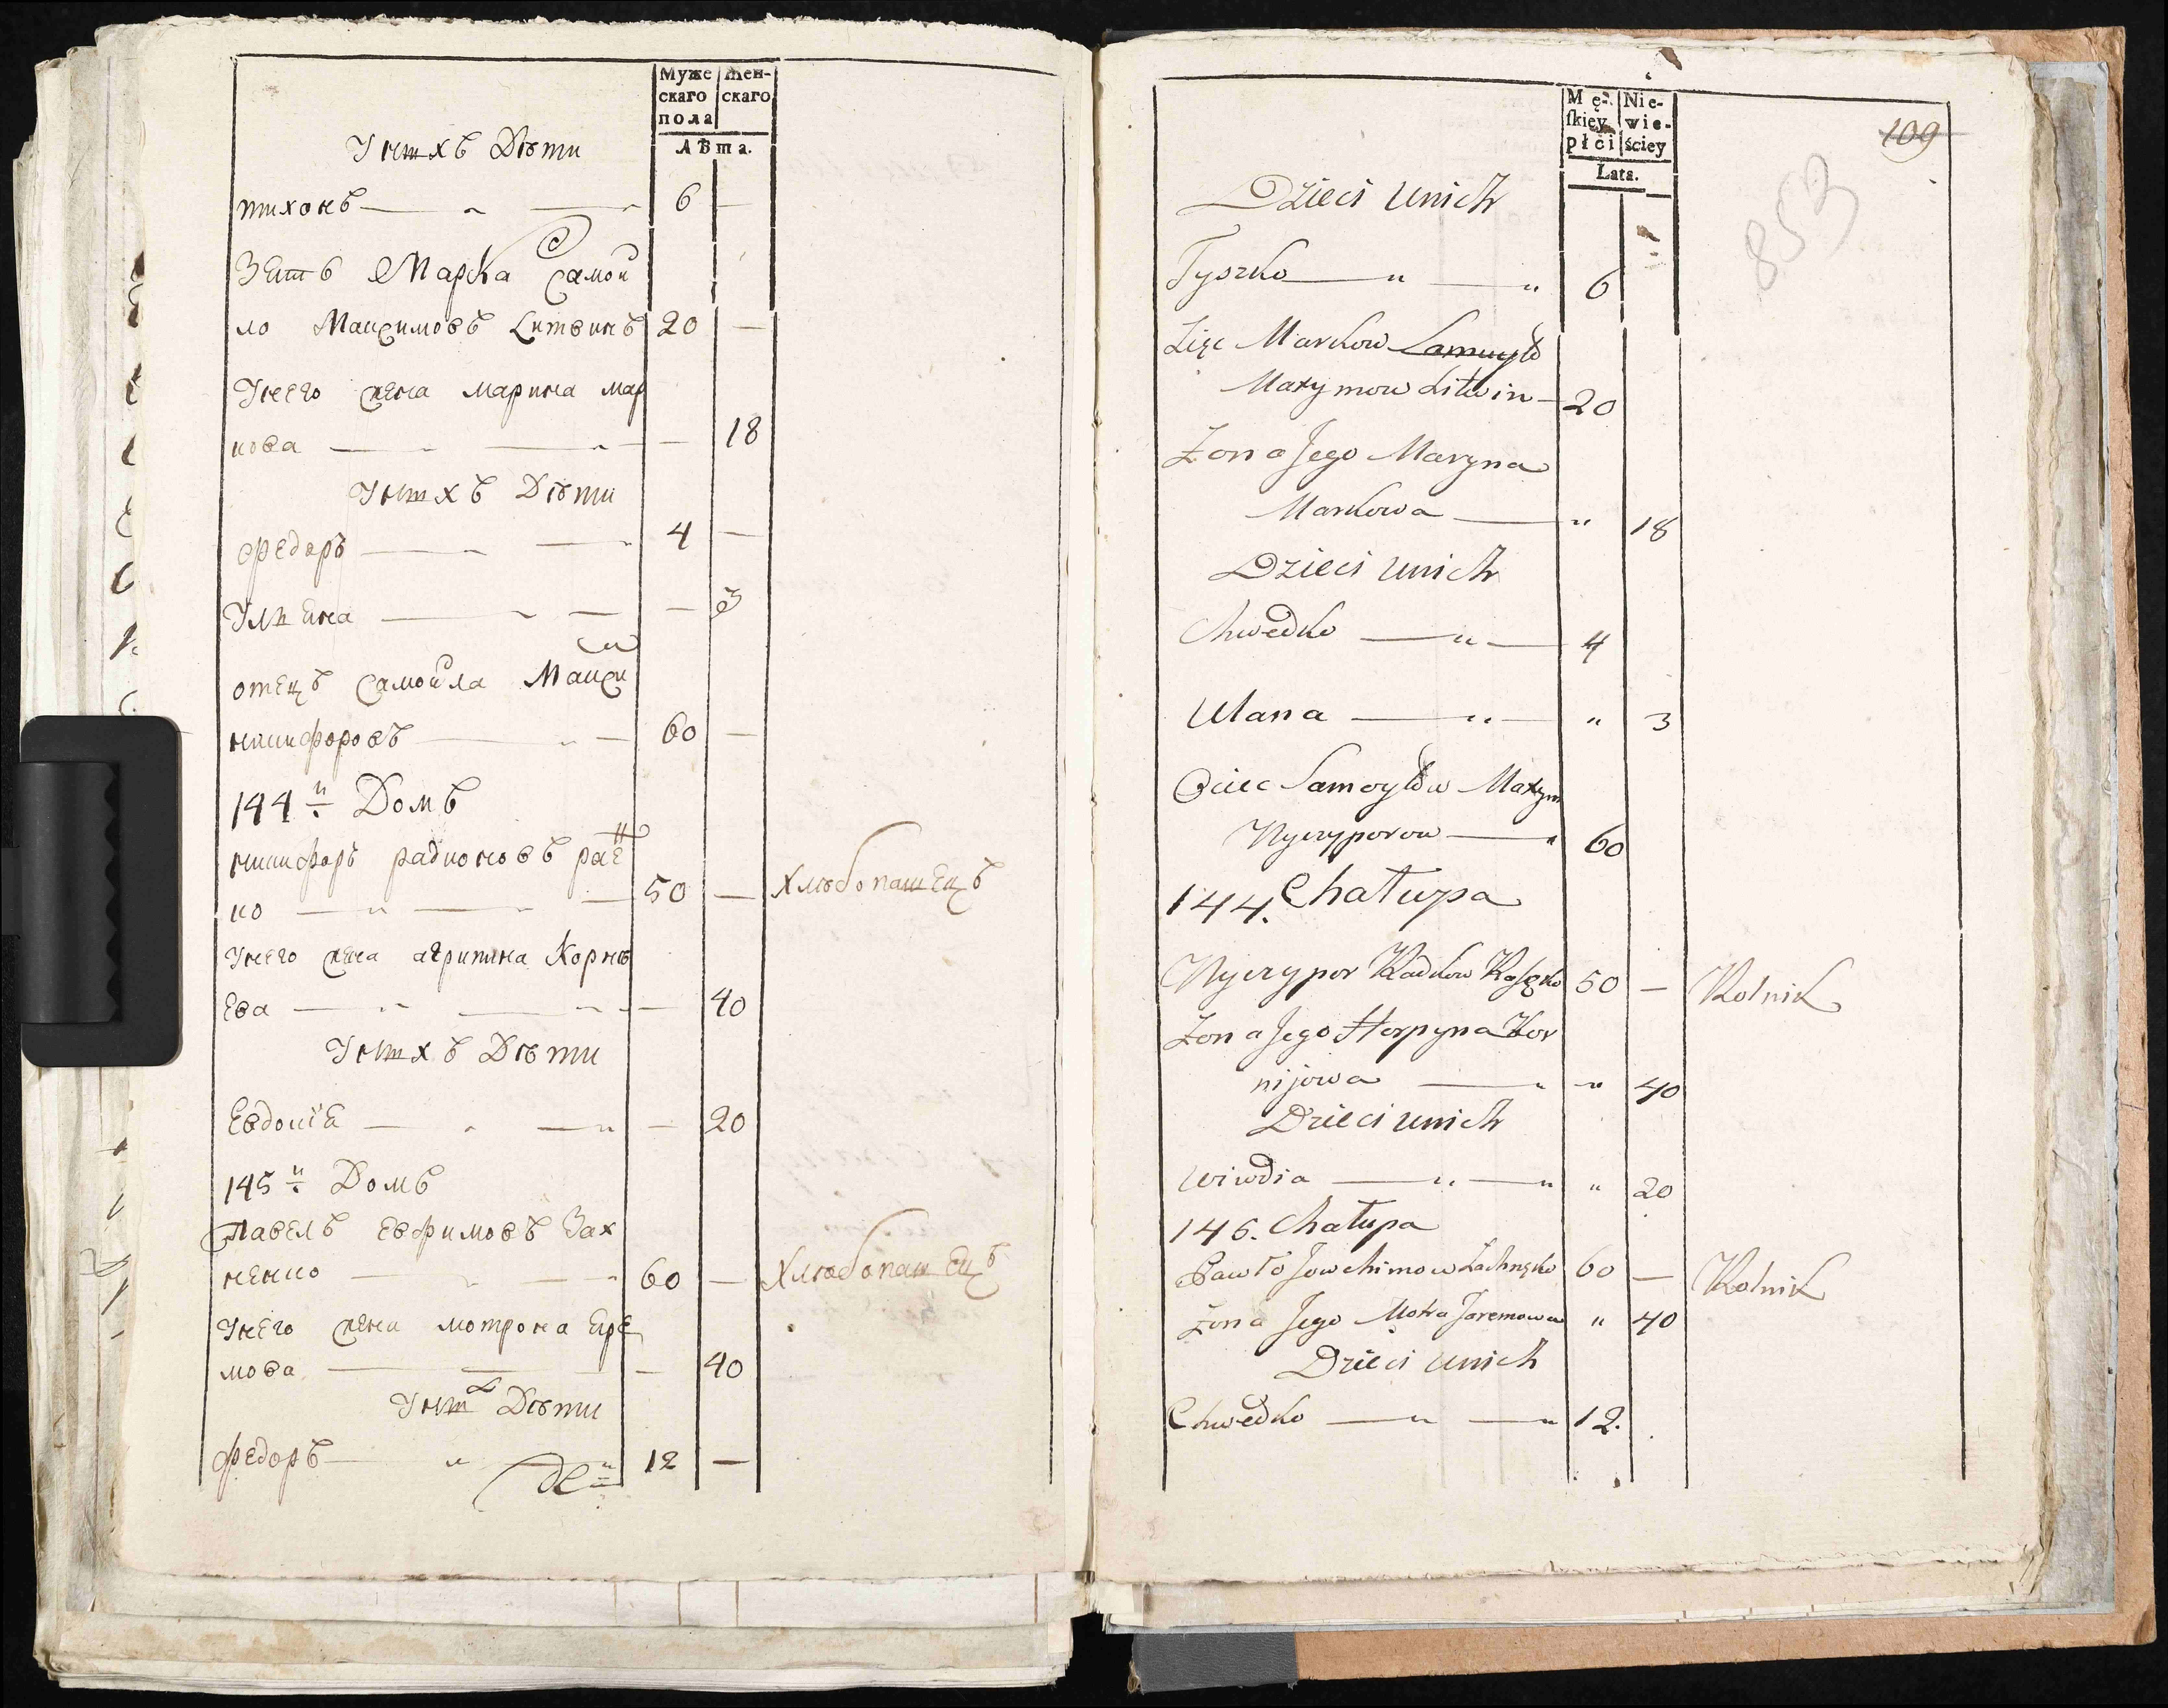 Муже скаго пола
Жен- скаго
Лѣта.
У нихъ Дѣти
тихонъ — 6 —
Зеть Марка Самой
ло Максимовъ Литвинъ 20 —
У него жена марина мар
кова — — 18
У нихъ Дѣти
федоръ — 4 —
Ульена — — 3
отецъ Самойла Макси
никифоровъ — 60 —
144й Домъ
никифоръ радионовъ раен
ко — 50 — Хлѣбопашецъ
У него жена агрипина Корнѣ
ева — — 40
У нихъ Дѣти
Евдокіа — — 20
145й Домъ
Павелъ Евфимовъ Зах
ненко — 60 — Хлѣбопашецъ
У него жена мотрона Ере
мова — — 40
У них Дѣти
федоръ — 12 —
Mę- ſkiey płci
Nie- wie- ściey
Lata.
109
853
Dzieci unich
Tyszko — " — " 6
Zięc Markow Samuyło
Maxymow Litwin — 20
Zona Jego Maryna
Markowa — " 18
Dzieci unich
Chwedko — " — 4
Ulana — " — " 3
Ociec Samoyłow Maxym
Nyczyporow — " 60
144. Chałupa
Nyczypor Radkow Rasęko 50 — Rolnik
Zona Jego Horpyna Kor
nijowa — " " 40
Dzieci unich
Wiwdia — " — " " 20
145. Chałupa
Pawło Jowchimow Zachnęko 60 — Rolnik
Zona Jego Motra Jaremowa " 40
Dzieci unich
Chwedko — " — " 12.